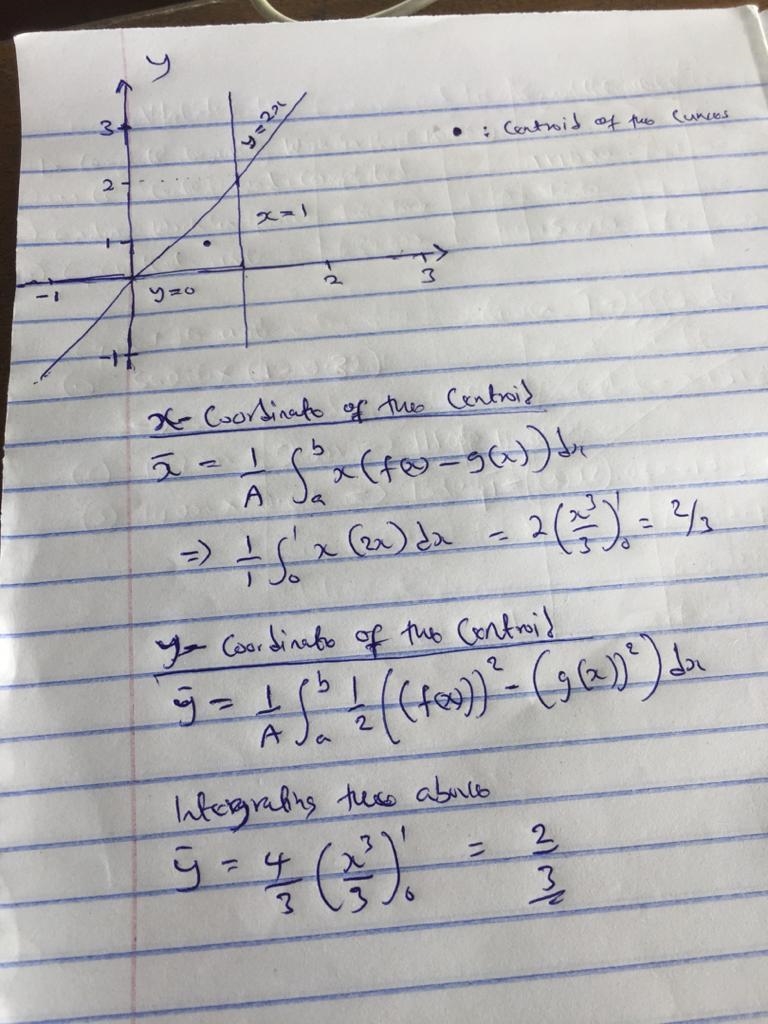 y
3
y=2x
• : Centroid of the Curves
2
x=1
1
-1 y=0 2 3
-1
x- Coordinate of the Centroid
x̄ = 1/A ∫_a^b x(f(x) - g(x)) dx
=> 1/1 ∫_0^1 x (2x) dx = 2(x³/3)_0^1 = 2/3
y- Coordinate of the Centroid
ȳ = 1/A ∫_a^b 1/2 ((f(x))² - (g(x))²) dx
Integrating the above
ȳ = 4/3 (x³/3)_0^1 = 2/3